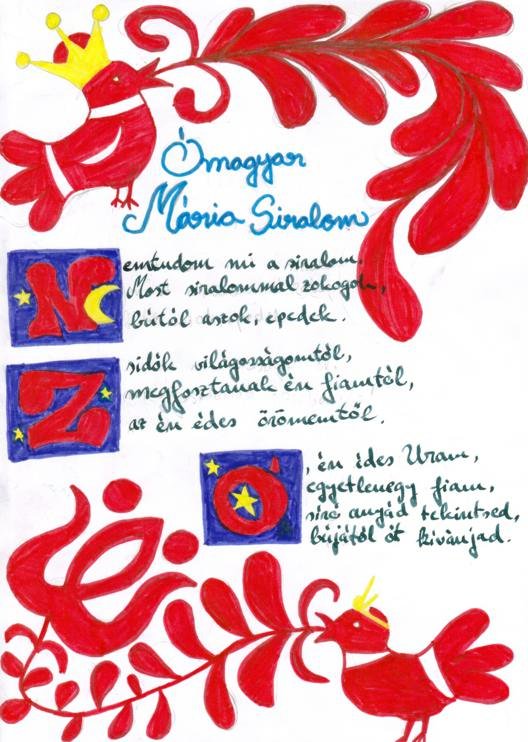 Ómagyar
Mária Siralom
Nemtudom mi a siralom.
Most siralommal zokogok,
bútól aszok, epedek.
Zsidók világosságomtól,
megfosztanak én fiamtól,
az én édes örömemtől.
Ó, én édes Uram,
egyetlenegy fiam,
síró anyád tekintsed,
bújától őt kivánjad.